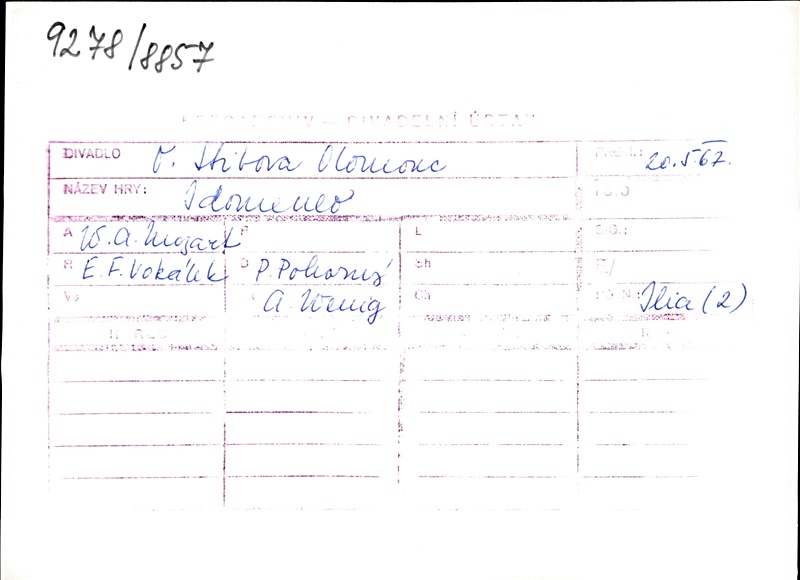 9278/8857
DIVADELNÍ ÚSTAV
DIVADLO O. Stibora Olomouc 20.5.67.
NÁZEV HRY: Idomeneo
A W.A. Mozart P L
R E.F. Vokálek D P. Pokorný Sh E/
Vs A. Wenig Ch Ilia (2)